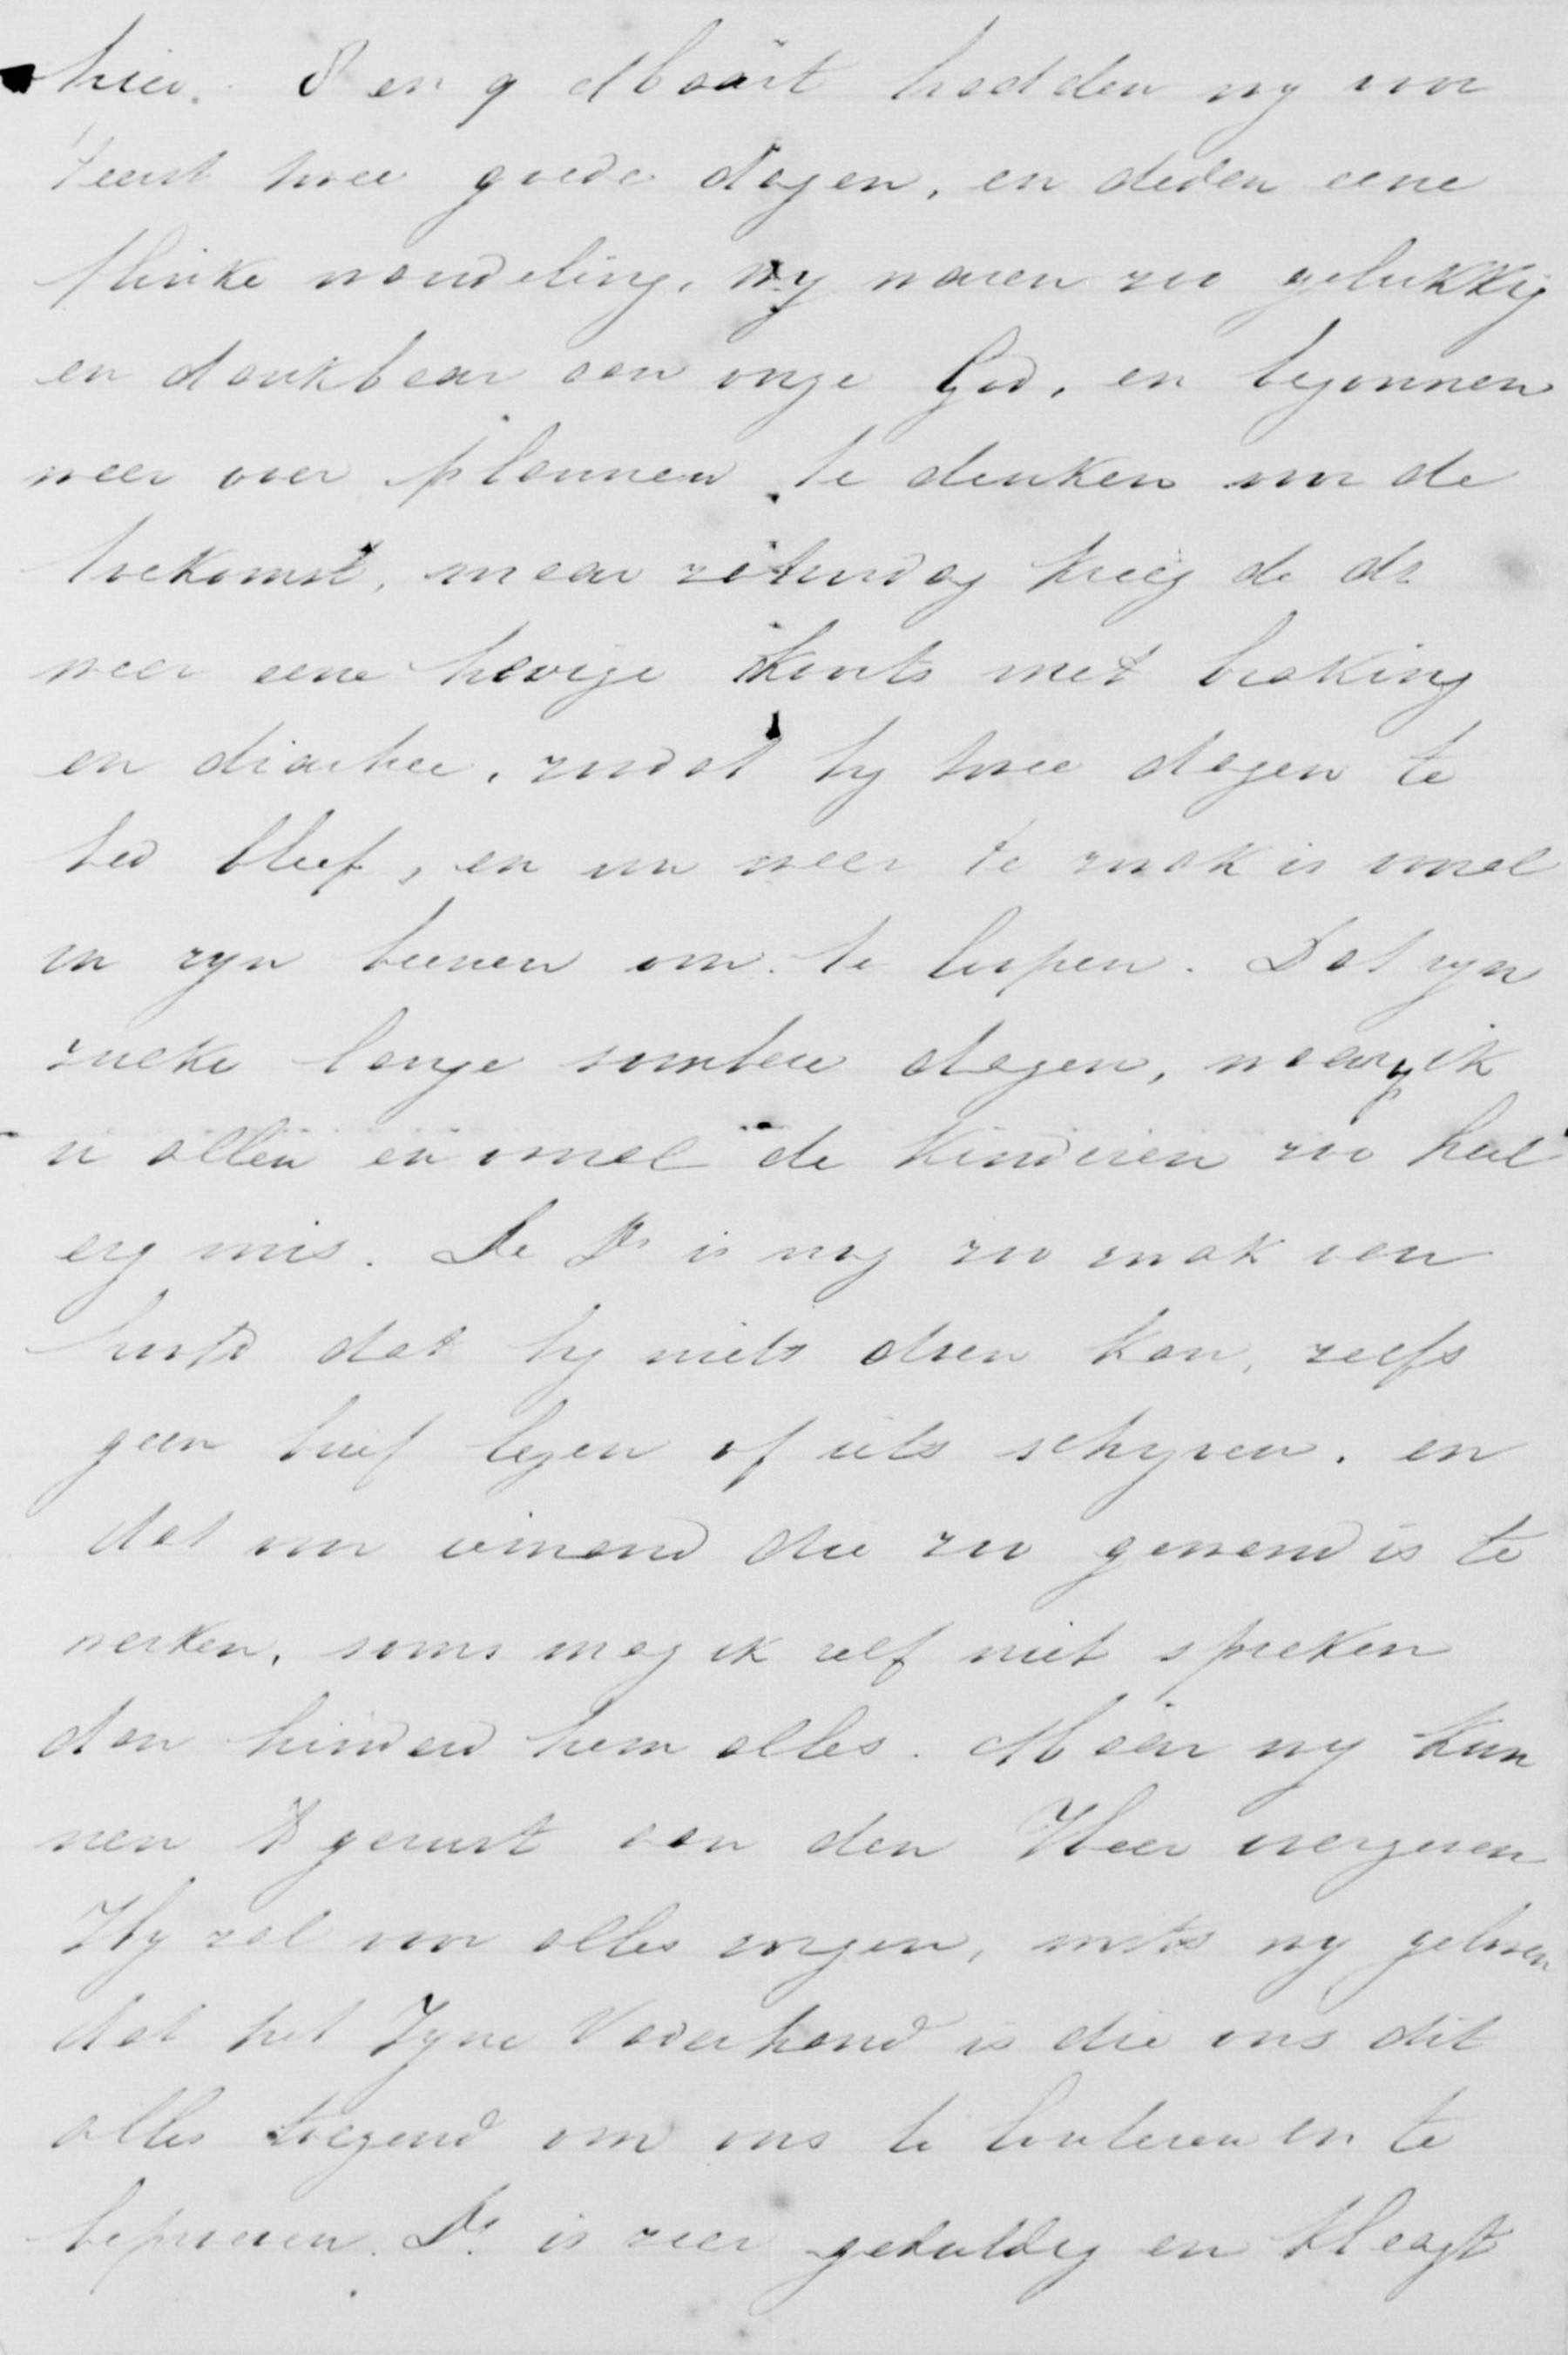 hier. 8 en 9 Maart hadden wy voor
't eerst twee goede dagen, en deden eene
flinke wandeling, wy waren zoo gelukkig
en dankbaar aan onze God, en begonnen
weer over plannen te denken voor de
toekomst, maar zaturdag kreeg de dr
weer eene hevige koorts met braking
en diarhee, zoodat hy twee dagen te
bed bleef, en nu weer te zwak is vooral
in zyn beenen om te loopen. Dat zyn
zulke lange sombere dagen, waarop ik
u allen en vooral de kinderen zoo heel
erg mis. De Dr is nog zoo zwak van
hoofd dat hy niets doen kan, zelfs
geen brief lezen of iets schryven, en
dat voor iemand die zoo gewend is te
werken, soms mag ik zelf niet spreken
dan hinderd hem alles. Maar wy kun
nen 't gerust aan den Heer overgeven
Hy zal voor alles zorgen, mits wy gelooven
dat het Zyne Vaderhand is die ons dit
alles toezend om ons te louteren en te
beproeven. Dr. is zeer geduldig en klaagt